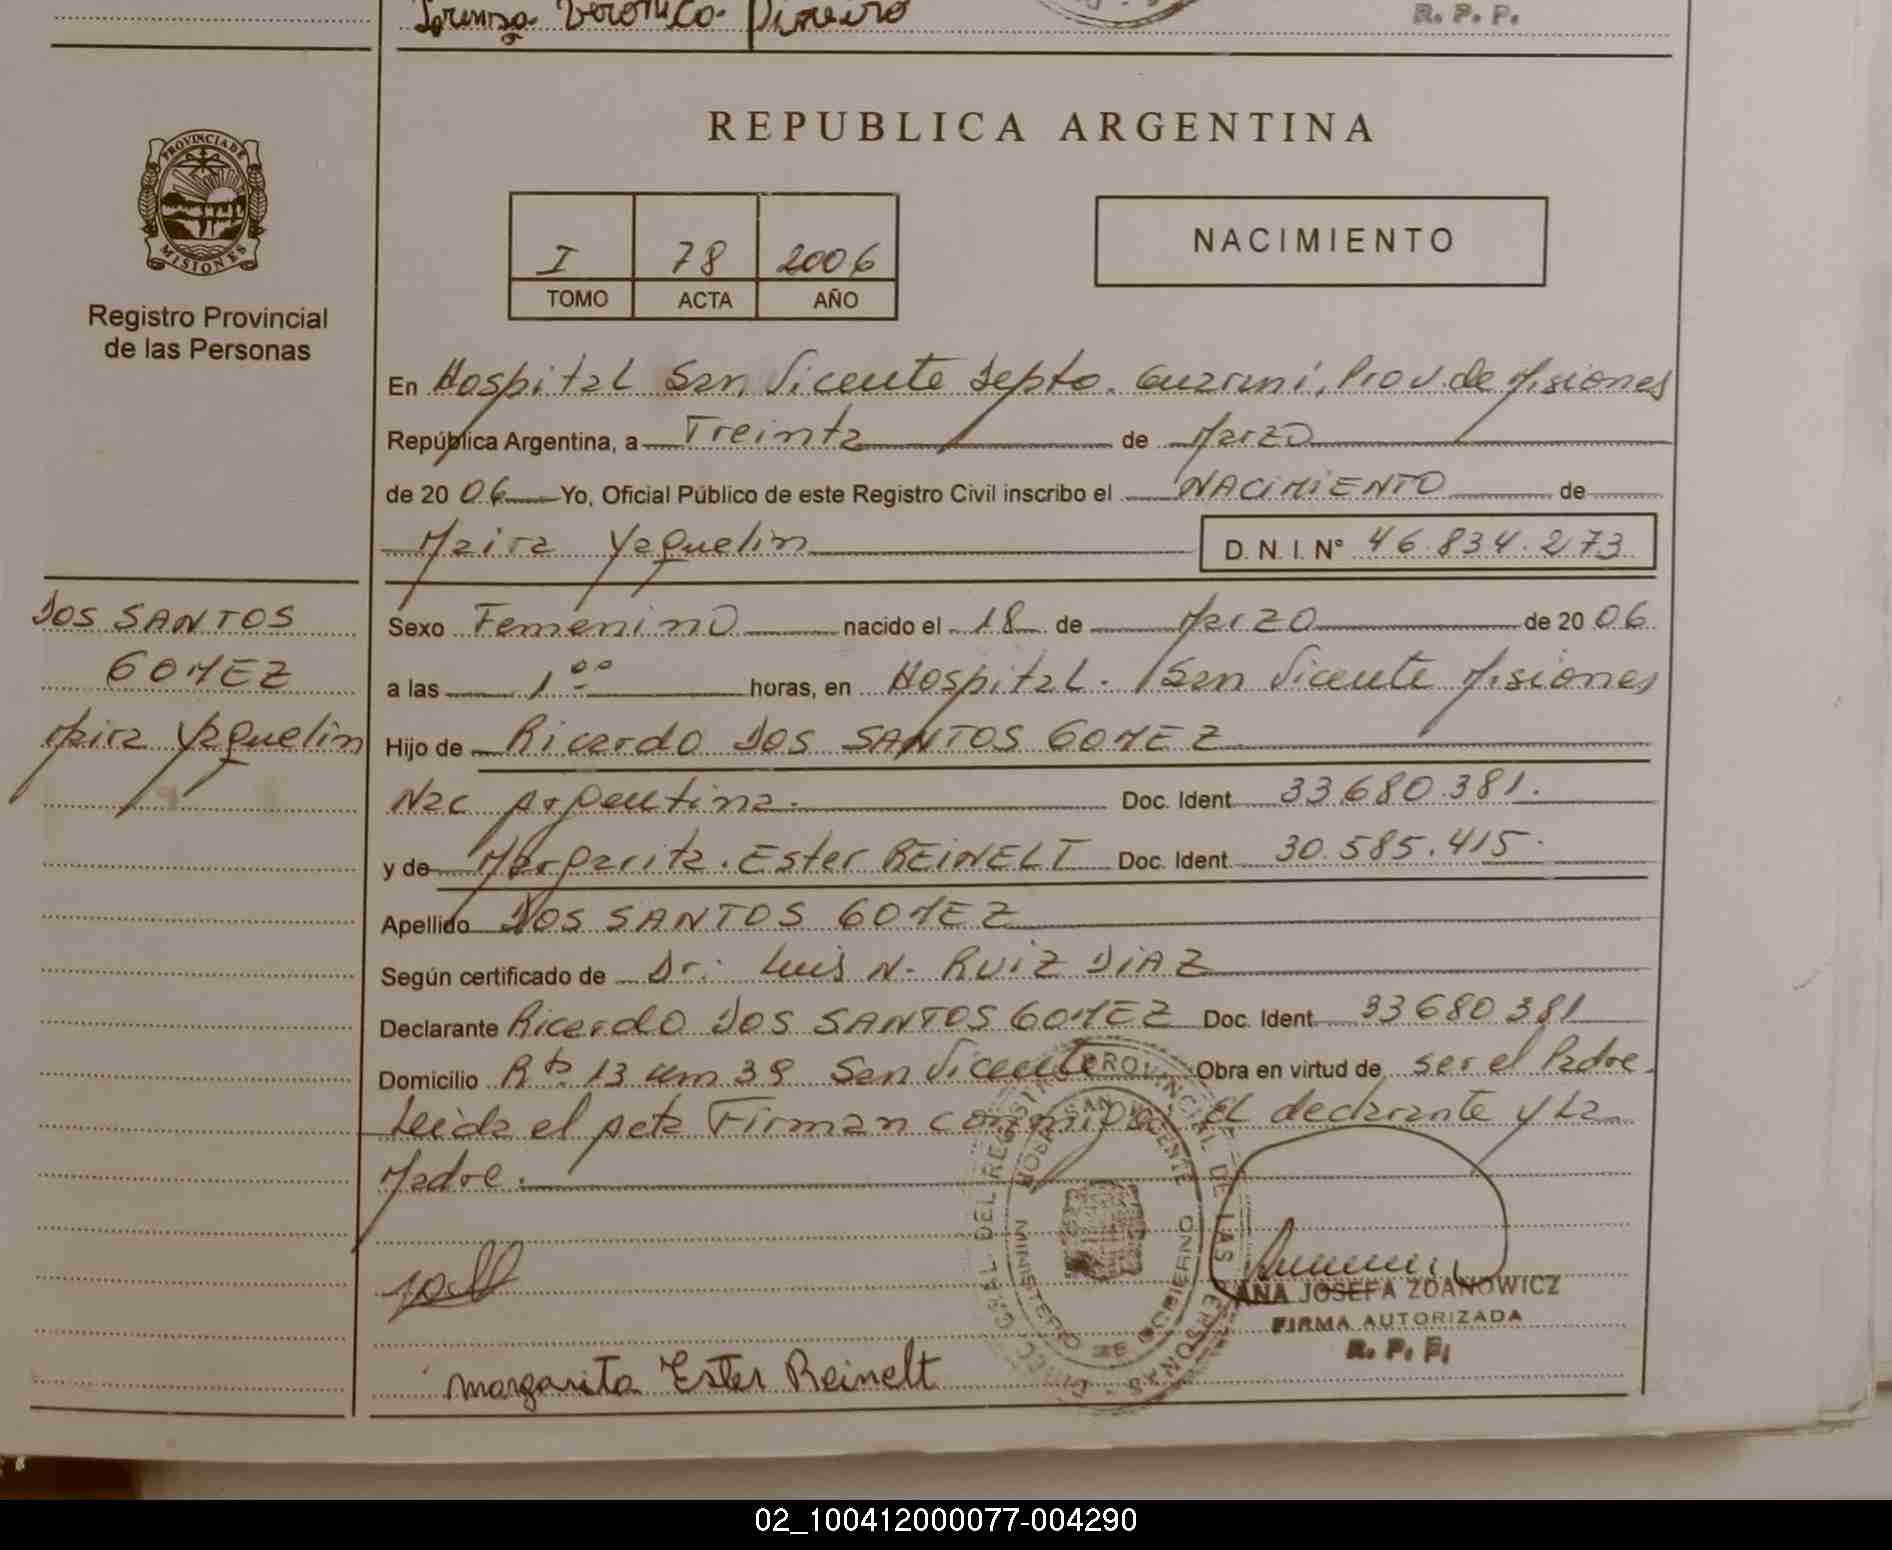 Lorenza Veronica Pineiro
R. P. P.
REPUBLICA ARGENTINA
PROVINCIA DE MISIONES
Registro Provincial
de las Personas
I 78 2006
TOMO ACTA AÑO
NACIMIENTO
En Hospital San Vicente Depto. Guarani, Prov. de Misiones
República Argentina, a Treinta de Marzo
de 2006 Yo, Oficial Público de este Registro Civil inscribo el NACIMIENTO de
Maira Yaquelin D. N. I. Nº 46.834.273
DOS SANTOS
GOMEZ
Maira Yaquelin
Sexo Femenino nacido el 18 de Marzo de 2006
a las 1°° horas, en Hospital. San Vicente Misiones
Hijo de Ricardo DOS SANTOS GOMEZ
Nac Argentina. Doc. Ident 33.680.381.
y de Margarita. Ester REINELT Doc. Ident. 30.585.415.
Apellido DOS SANTOS GOMEZ
Según certificado de Dr. Luis N. RUIZ DIAZ
Declarante Ricardo DOS SANTOS GOMEZ Doc. Ident. 33680381
Domicilio Rta. 13 km 39 San Vicente Obra en virtud de ser el Padre.
Leida el Acta Firman conmigo. El declarante y La
Madre.
HOSP. SAN VICENTE
MINISTERIO DE GOBIERNO
ANA JOSEFA ZDANOWICZ
FIRMA AUTORIZADA
R. P. P.
Margarita Ester Reinelt
02_100412000077-004290